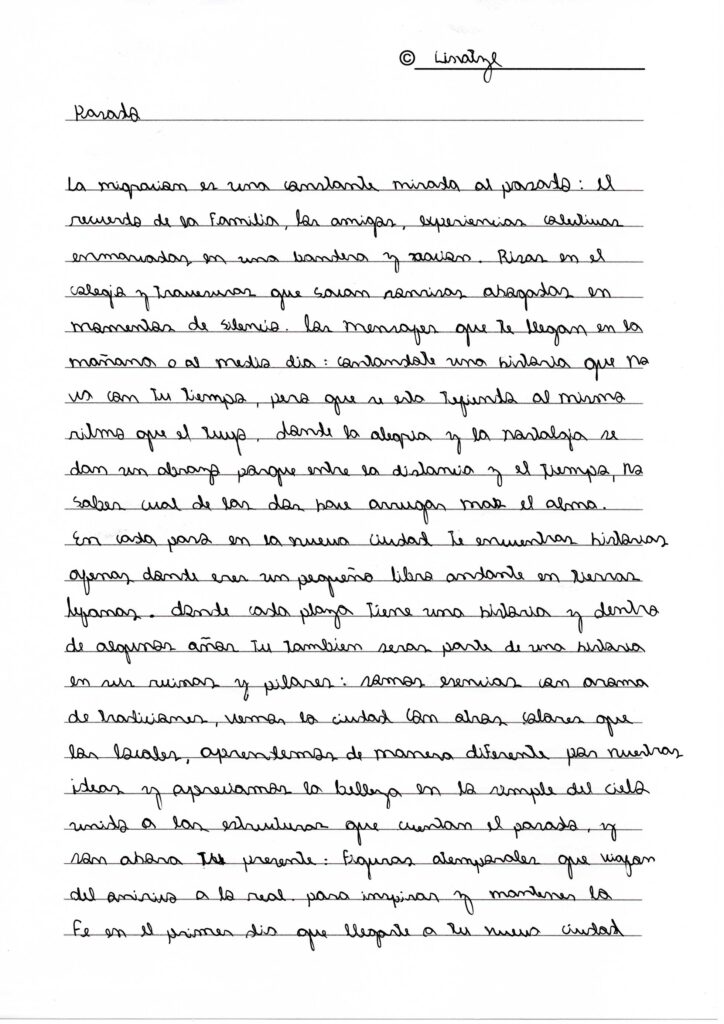 © Linatzil
Pasado
La migracion es una constante mirada al pasado : el
recuerdo de la Familia, los amigos, experiencias colectivas
enmarcadas en una bandera y nacion. Risas en el
colegio y Travesuras que sacan sonrisas ahogadas en
momentos de silencio. los mensajes que te llegan en la
mañana o al medio dia : contandote una historia que no
va con tu tiempo, pero que se esta Tejiendo al mismo
ritmo que el tuyo, donde la alegria y la nostalgia se
dan un abrazo porque entre la distancia y el tiempo, no
sabes cual de las dos hace arrugar mas el alma.
En cada paso en la nueva ciudad te encuentras historias
ajenas donde eres un pequeño libro andante en tierras
lejanas. donde cada plaza tiene una historia y dentro
de algunos años tu tambien seras parte de una historia
en sus ruinas y pilares : somos esencias con aroma
de tradiciones, vemos la ciudad con otros colores que
los locales, aprendemos de manera diferente por nuestras
ideas y apreciamos la belleza en lo simple del cielo
unido a las estructuras que cuentan el pasado, y
son ahora tu presente : Figuras atemporales que viajan
del onirico a lo real. para inspirar y mantener la
Fe en el primer dia que llegaste a tu nueva ciudad